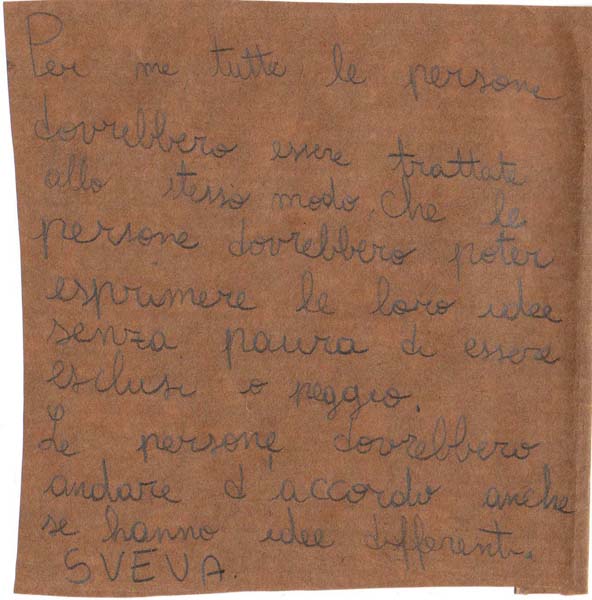 Per me tutte le persone
dovrebbero essere trattate
allo stesso modo. Che le
persone dovrebbero poter
esprimere le loro idee
senza paura di essere
esclusi o peggio.
Le persone dovrebbero
andare d'accordo anche
se hanno idee differenti.
SVEVA.